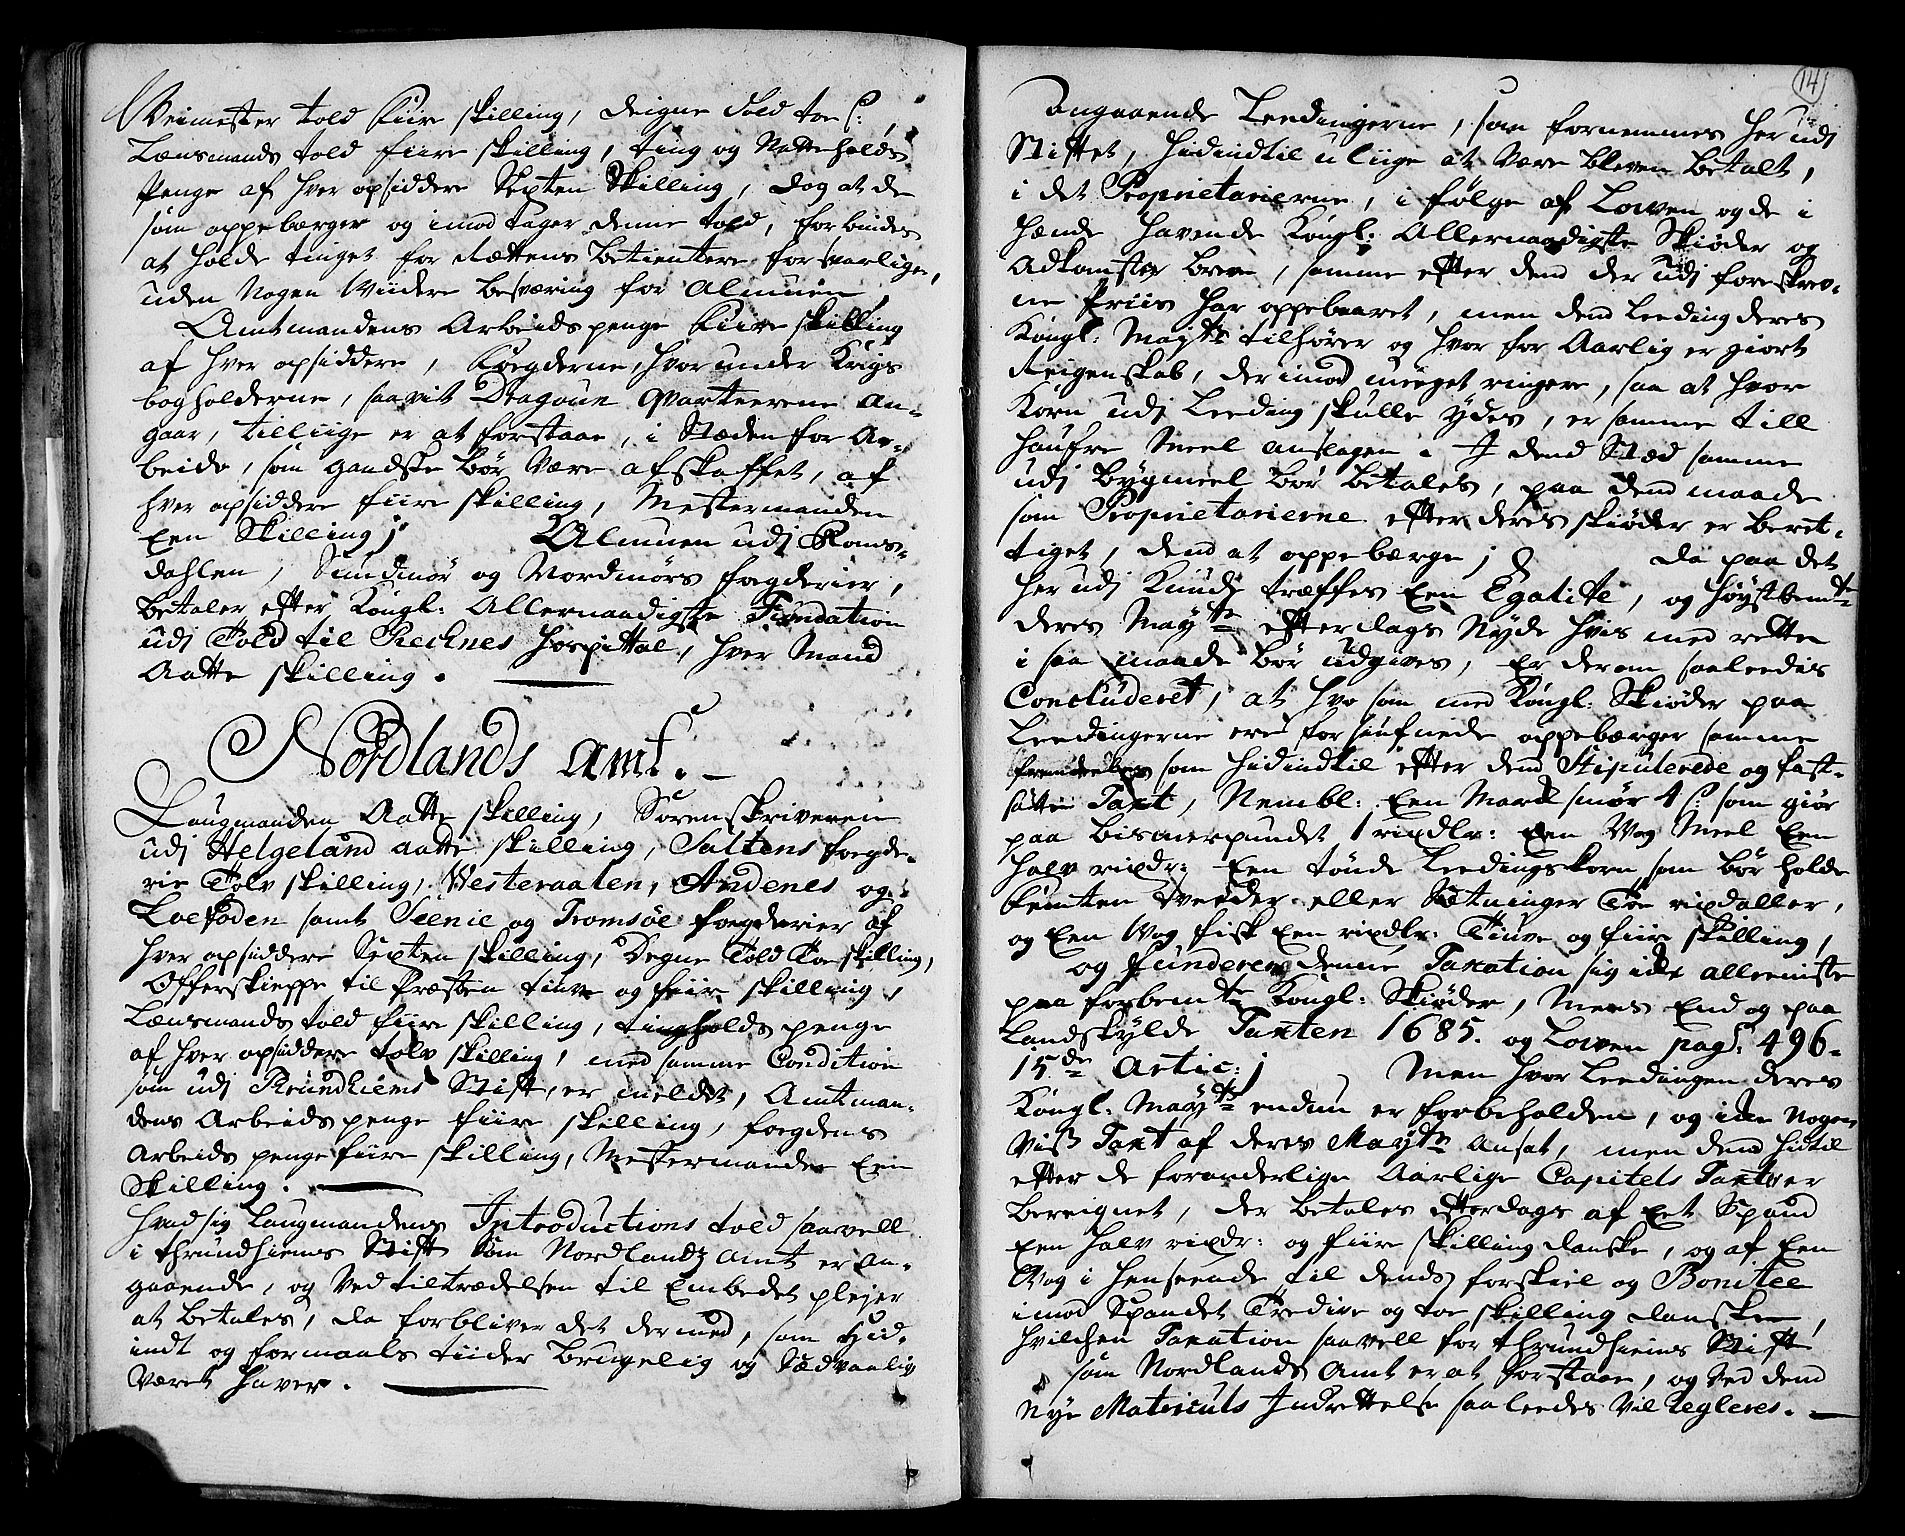 Veimester told fiire skilling, deigne told toe s:,
Lænsmands told fiire skilling, ting og Natteholds
Penge af hver opsiddere Sexten Skilling, dog at de
som oppebærger og imod tager denne told, forbindes
at holde tinget for Rættens betientere forsvarlige,
uden Nogen Viidere besværing for Almuen,
Amtmandens Arbeids penge fiire skilling
af hver opsiddere, Foegderne, hvorunder Krigs
bogholderne, saavit Dragoun Qvarteerene an-
gaar, tilliige er at forstaae, i Stæden for Ar-
beide, som gandske bør være afskaffet, af
hver opsiddere fiire skilling, Mestermanden
Een Skilling; Almuen udj Roms-
dahlen, Sundmør og Nordmørs foegderier,
betaler efter Kongl: Allernaadigste Fundation
udj Told til Recknes Hospittal, hver Mand
Aatte skilling.
Nordlands Amt.
Laugmanden Aatte skilling, Sorenskriveren
udj Helgeland aatte skilling, Saltens foegde-
rie Tolv skilling, Westeraalen, Andenes og
Loefoden samt Sienie og Tromsøe foegderier af
hver opsiddere Sexten skilling, Degne Told Toe skilling,
Offerskieppe til Præsten tiuve og fiir skilling,
Lænsmands told fiire skilling, tingholds penge
af hver opsiddere tolv skilling, med samme Condition
som udj Trundhiems Stift, er meldet, Amtman-
dens Arbeids penge fiire skilling, foegdens
Arbeids penge fiire skilling, Mestermanden Een
Skilling.
Hvad sig Laugmandens Introductions told saavell
i Thrundhiems Stift som Nordlandz Amt er an-
gaaende, og ved tiltrædelsen til Embedet plejer
at betales, da forbliver det dermed, som hid-
indt og formaals tiider brugelig og Sædvaanlig
Været haver.
14
Angaaende Leedingerne, som fornemmes her udj
Stiftet, hidindtil uliige at være bleven betalt,
i det Proprietarierne, i følge af Lowen og de i
hænde havende Kongl: Allernaadigste Skiøder og
Adkomster breve, samme efter dend der udj foreskrev-
ne Priis har oppebaaret, men dend Leeding deres
Kongl: Maytt tilhører og hvor for Aarlig er giort
Reigenskab, derimod meeget ringere, saa at hvor
Korn udj Leeding skulle ydes, er samme till
haufre Meel anslagen i dend Stæd samme
udj Bygmeel bør betales, paa dend maade
som Proprietarierne efter deres skiøder er beret-
tiget, dend at oppebærge; Da paa det
her udj kunde træffes Een Egalite, og høystbemte
deres Maytt efterdags Nyde hvis med rette
i saa maade bør udgives, Er derom saaleedis
Concluderet, at hvo som med Kongl: Skiøder paa
Leedingerne ere forsiufnede oppebærger samme
fremdeeles som hidindtil efter dend Stipulerede og fast-
satte Taxt, Nembl: Een Mark smør 4 s: som giør
paa Bismerpundet 1 rixdlr: Een Vog Meel Een
halv rixdr: Een tønde Leedingskorn, som bør holde
femten Sveeder eller Sætninger Toe rixdaller,
og Een Wog fisk Een rixdlr: Tiuve og fiir skilling,
og funderer denne Taxation sig icke alleeniste
paa forbemte Kongl: Skiøder, Mens End og paa
Landskylds Taxten 1685. og Lowen pag: 496.
15de Artic:; Men hvor Leedingen deres
Kongl: Maytt endnu er forbeholden, og icke Nogen
viss Taxt af deres Maytt ansat, men dend hidtil
efter de foranderlige Aarlige Capitels Taxter er
bereignet, der betales efterdags af Eet Spand
Een halv rixdr: og fiire skilling danske, og af Een
Vog i henseende til dends forskiel og Bonitee
imod Spandet Tredive og toe skilling danske,
hvilchen Taxation saavell for Thrundhiems Stift
som Nordlands Amt er at forstaae, og ved dend
Nye Matriculs Indrettelse saaleedes vil Regleres.